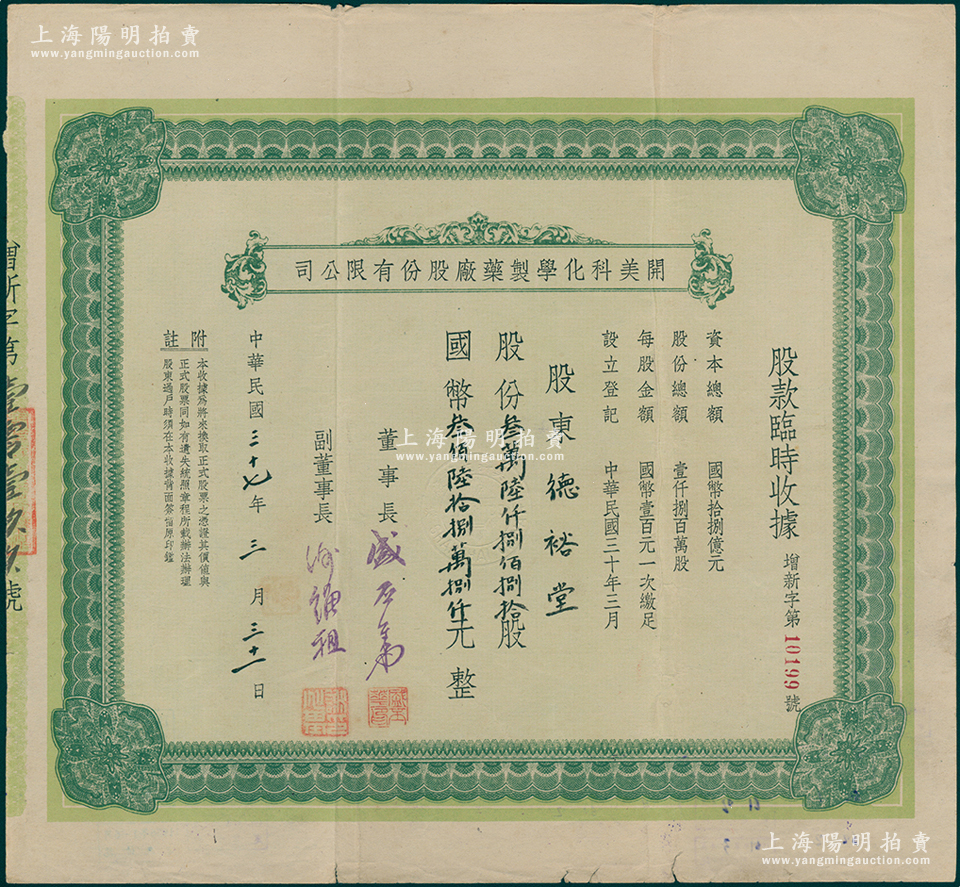 上海陽明拍賣
www.yangmingauction.com
開美科化學製藥廠股份有限公司
股款臨時收據 增新字第10199號
資本總額 國幣拾捌億元
股份總額 壹仟捌百萬股
每股金額 國幣壹百元一次繳足
設立登記 中華民國三十年三月
股東 德裕堂
股份叁萬陸仟捌佰捌拾股
國幣叁佰陸拾捌萬捌仟元整
董事長
副董事長
中華民國三十七年三月三十一日
附註
本收據為將來換取正式股票之憑證其價值與
正式股票同如有遺失統照章程所載辦法辦理
股東過戶時須在本收據背面簽蓋原印鑑
增新字第壹零壹玖玖號
上海陽明拍賣
www.yangmingauction.com
上海陽明拍賣
www.yangmingauction.com